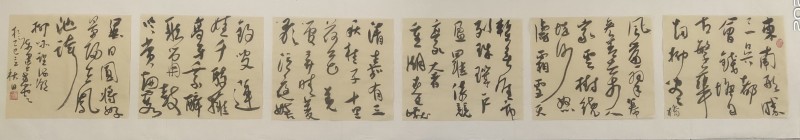 東南形勝
三吳都
會錢塘自
古繁華
烟柳畫橋
風簾翠幕
參差十萬人
家雲樹繞
堤沙怒
濤捲霜雪天
塹無涯市
列珠璣戶
盈羅綺競
豪奢
重湖疊巘
清嘉有三
秋桂子十里
荷花羌
管弄晴菱
歌泛夜嬉嬉
釣叟蓮
娃千騎擁
高牙乘醉
聽簫鼓
吟賞烟霞
異日圖將好
景歸去鳳
池誇
柳永望海潮
秋日